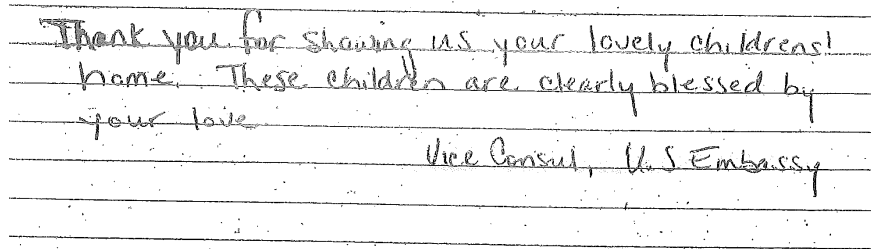 Thank you for showing us your lovely childrens'
home. These children are clearly blessed by
your love
Vice Consul, U.S Embassy